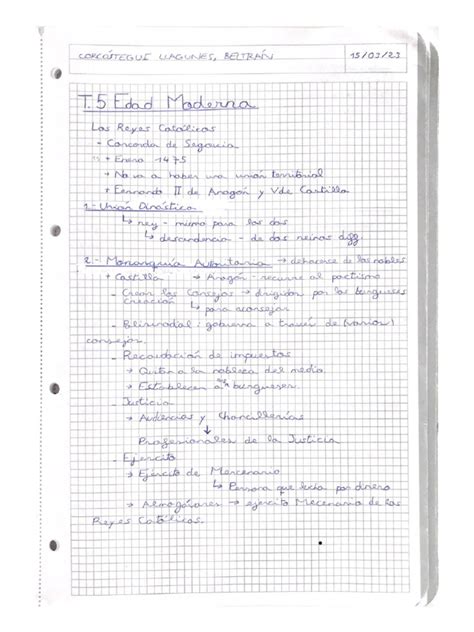 CORCÓSTEGUI LLAGUNES, BELTRÁN 15/03/23
T.5 Edad Moderna
Los Reyes Católicos
- Concordia de Segovia
+ Enero 1475
+ No va a haber una unión territorial
+ Fernando II de Aragón y V de Castilla
1.- Unión Dinástica
↳ rey - mismo para los dos
↳ descendencia - de dos reinos diff.
2.- Monarquía Autoritaria → deshacerse de los nobles
+ Castilla → Aragón - recurre al pactismo
- Crean los Consejos → dirigidos por los burgueses
creación ↳ para aconsejar
- gobierna a través de (varios)
consejos.
- Recaudación de impuestos
→ Quitan a la nobleza del medio
→ Establecen a burgueses.
- Justicia
→ Audiencias y Chancillerías
↓
Profesionales de la Justicia
- Ejercito
→ Ejercito de Mercenario
↳ Persona que lucha por dinero
→ Almogávares → ejercito Mercenario de los
Reyes Católicos.